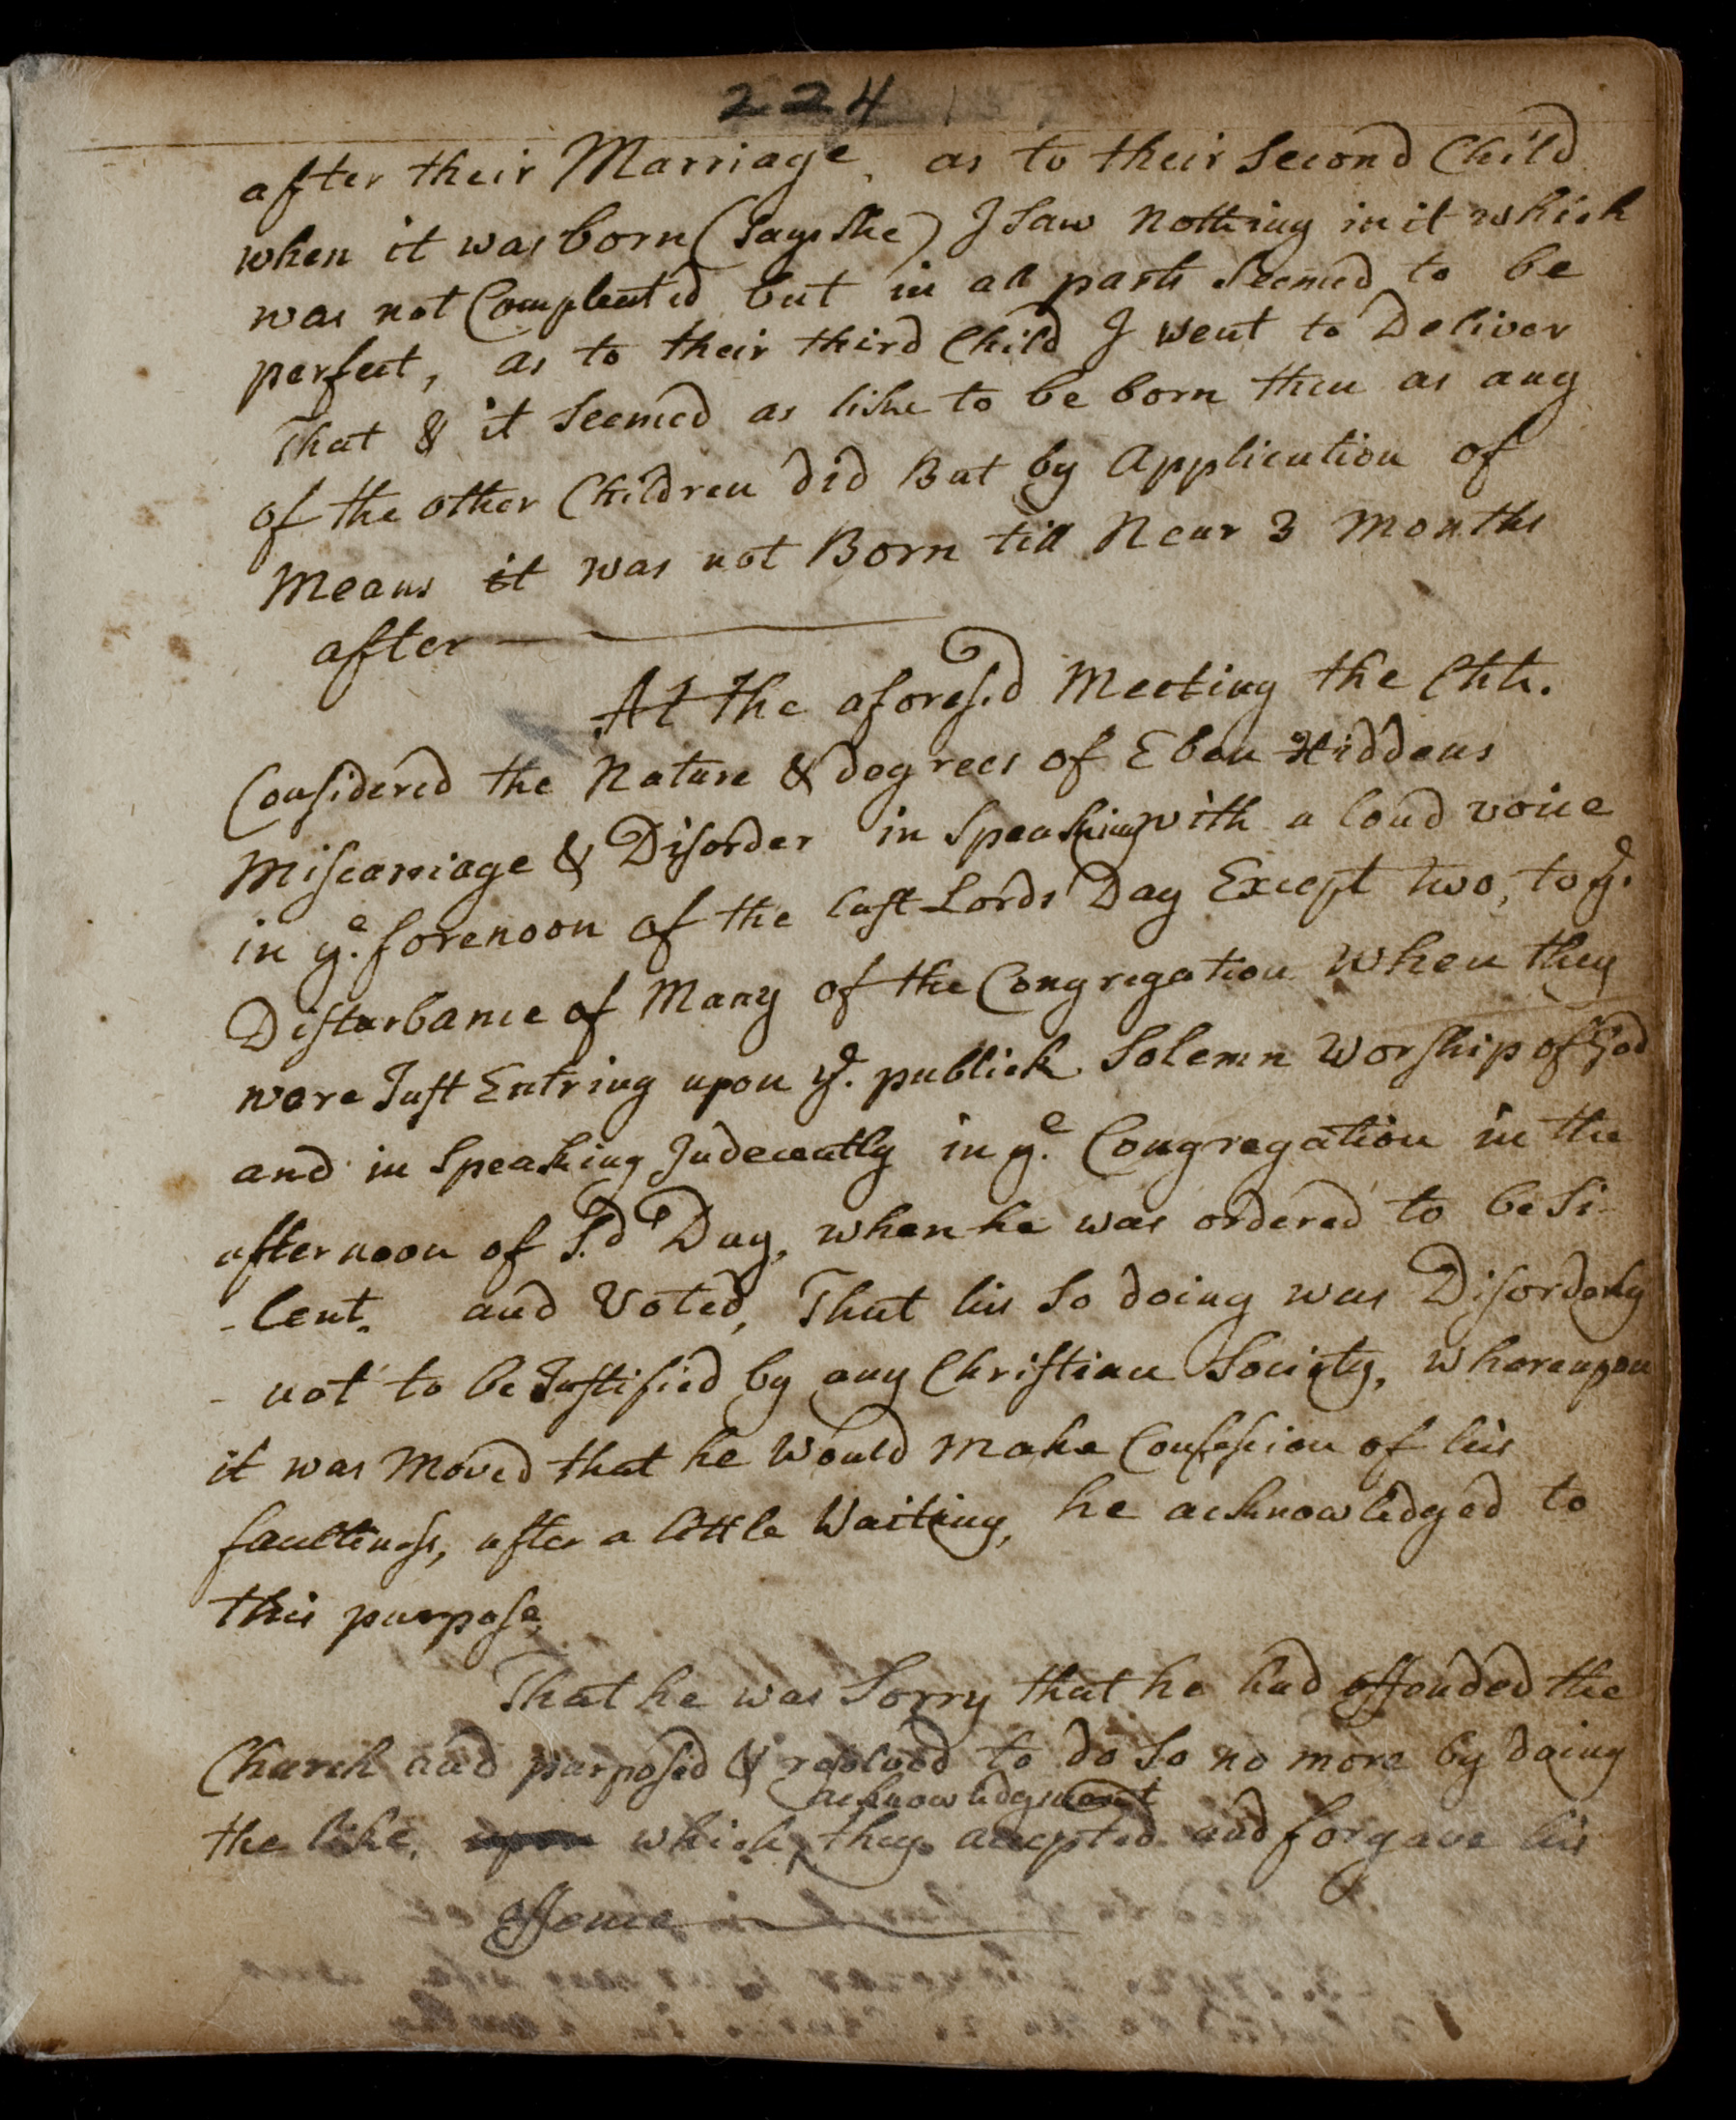 224
after their Marriage, as to their Second Child
when it was born (Says She) I Saw Nothing in it which
was not Compleated but in all parts Seemed to be
perfect, as to their third Child I went to Deliver
That & it Seemed as like to be born then as any
of the other Children did But by Application of
Means it was not Born till Near 3 Months
after
At the afores.d Meeting the Chh.
Considered the Nature & degrees of Eben Hiddens
Miscarriage & Disorder in Speaking with a loud voice
in ye. forenoon of the last Lords Day Except two, to ye.
Disturbance of Many of the Congregation When they
were Just Entring upon ye. publick Solemn Worship of God
and in Speaking Indecently in ye. Congregation in the
afternoon of S.d Day, when he was ordered to be Si-
-lent. and Voted, That his So doing was Disorderly
- not to be Justified by any Christian Society, whereupon
it was Moved that he Would Make Confession of his
faultiness, after a little Waiting, he acknowledged to
this purpose,
That he was Sorry that he had offended the
Church and purposed & resolved to do So no more by doing
acknowledgment
the like, upon which ‸ they accepted and forgave his
offence